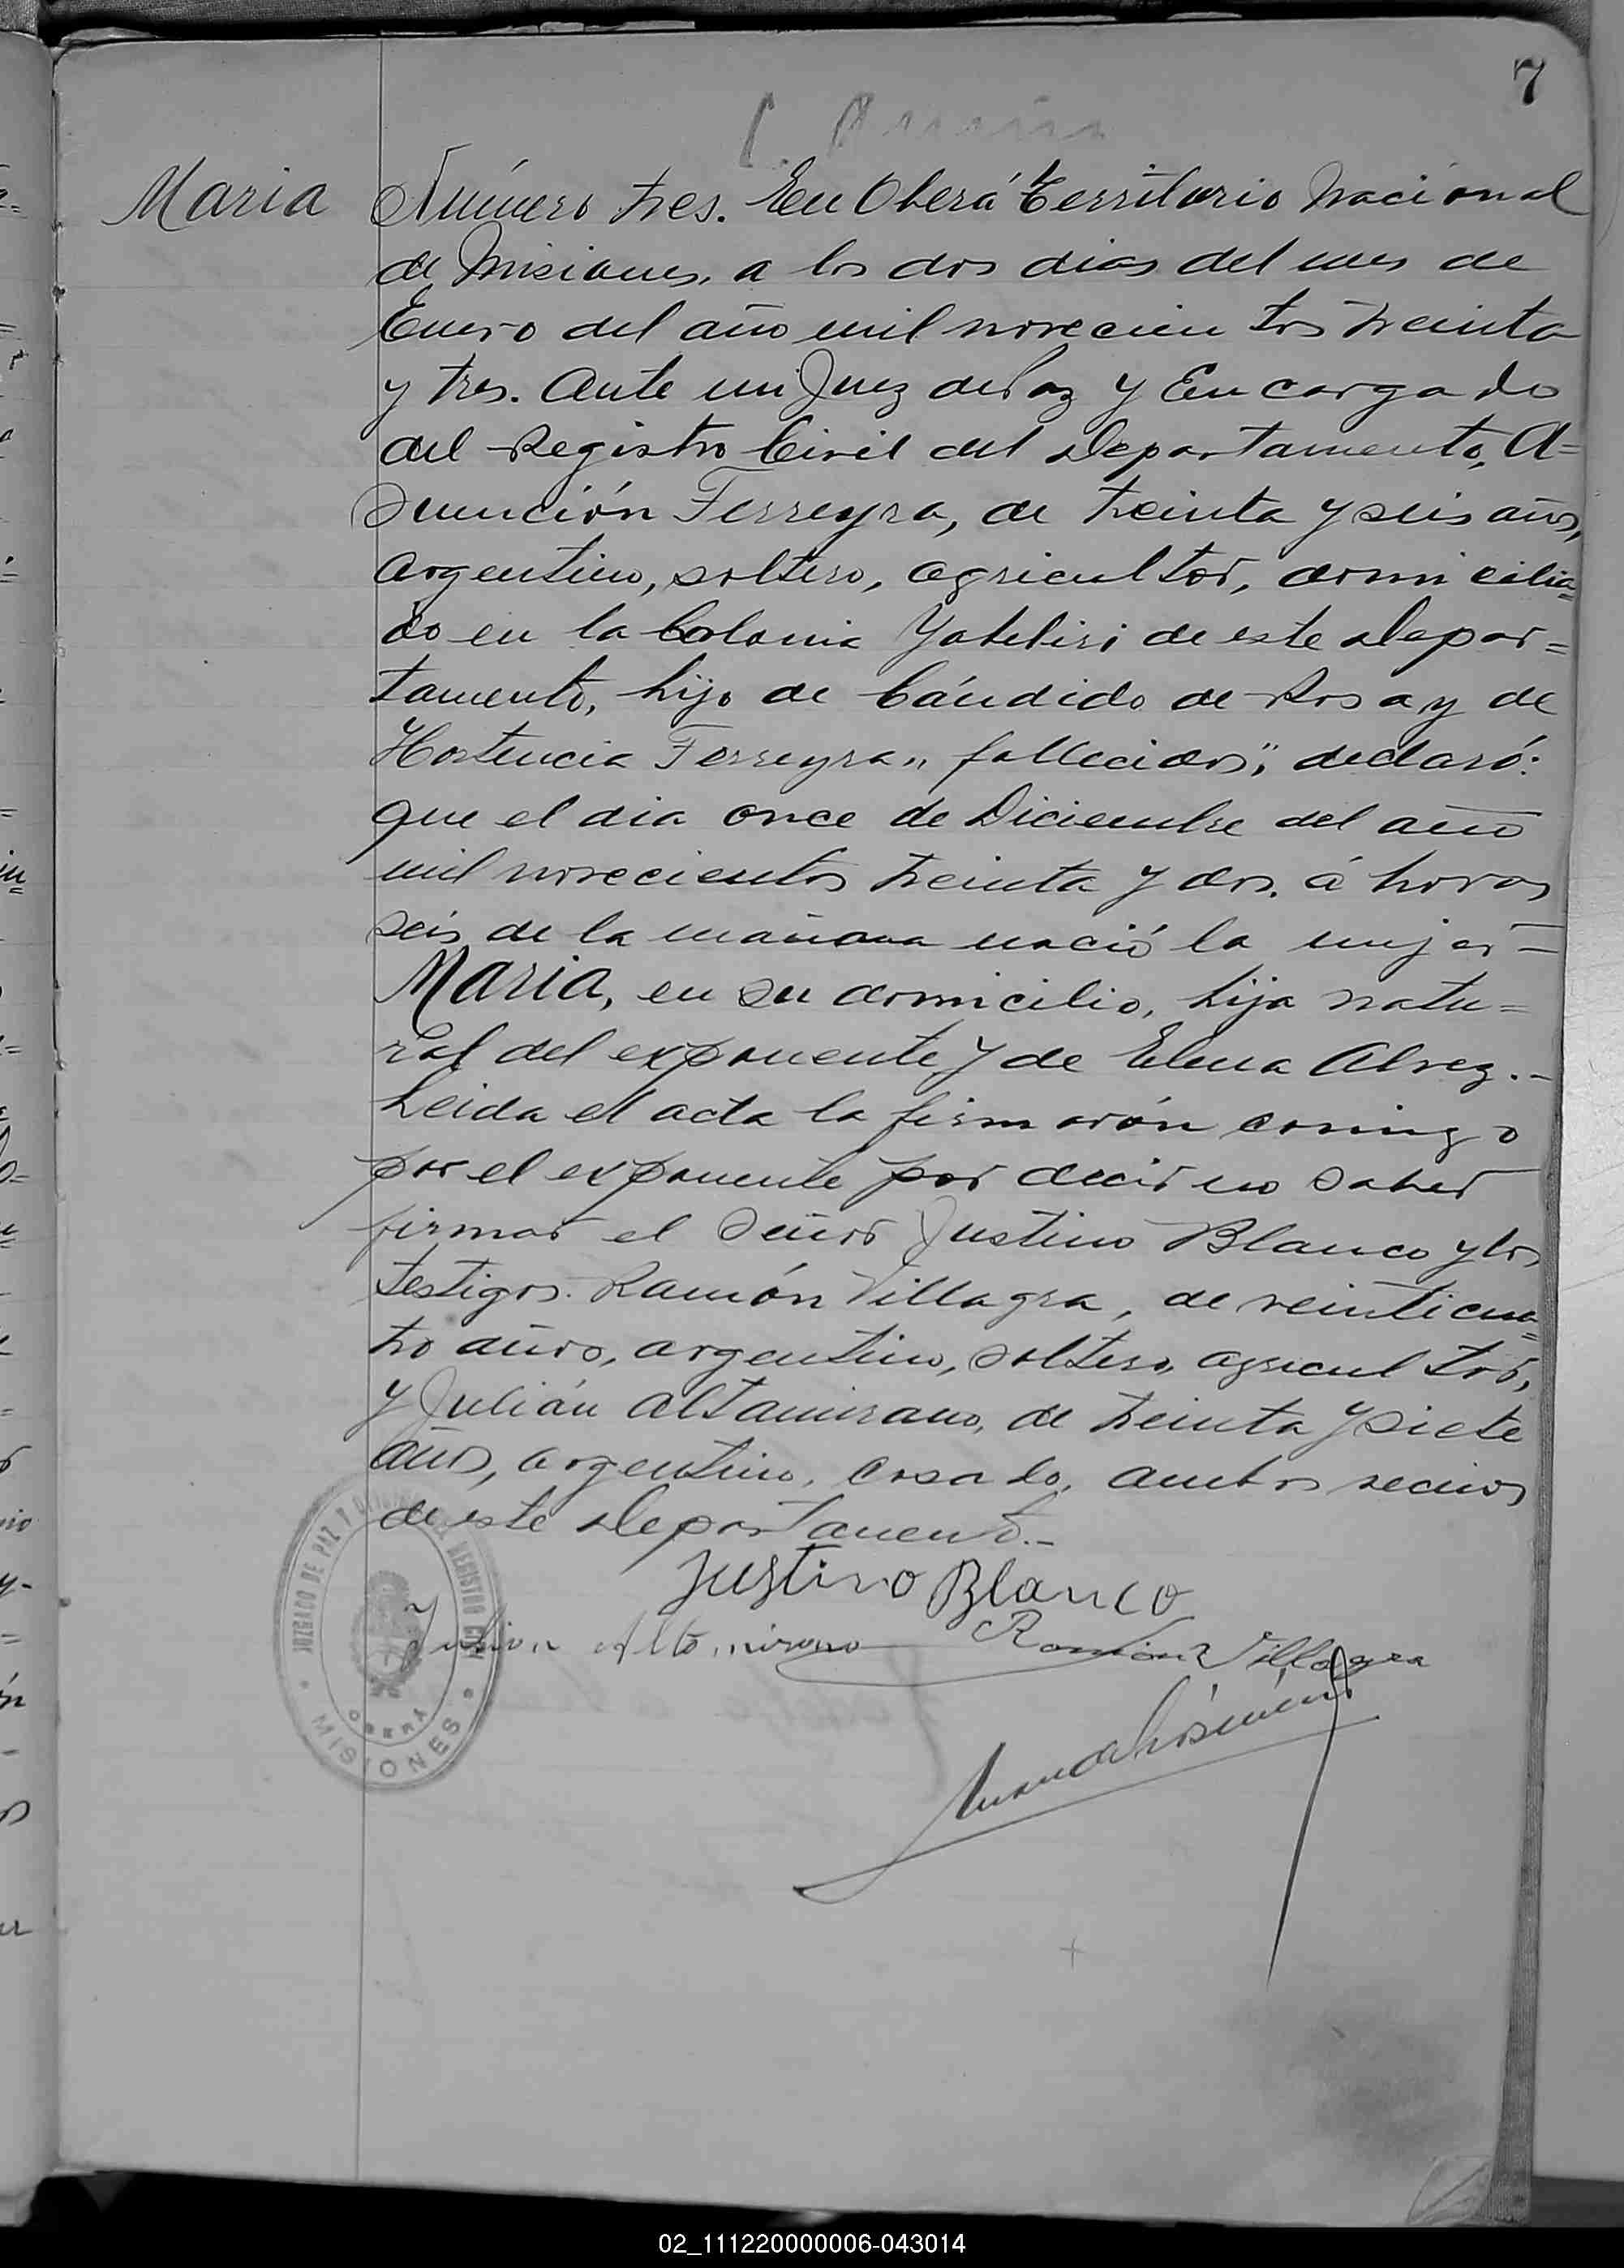 7
Maria
Número tres. En Oberá Territorio Nacional
de Misiones, a los dos dias del mes de
Enero del año mil novecientos treinta
y tres. Ante mi Juez de Paz y Encargado
del Registro Civil del Departamento, A=
sunción Ferreyra, de treinta y seis años,
argentino, soltero, agricultor, domicilia=
do en la Colonia Yabebiri de este Depar=
tamento, hijo de Cándido de Rosa y de
Hortencia Ferreyra „fallecidos", declaró:
que el dia once de Diciembre del año
mil novecientos treinta y dos, á horas
seis de la mañana nació la mujer=
MARIA, en su domicilio, hija natu=
ral del exponente y de Elena Alvez.-
Leida el acta la firmarón conmigo
por el exponente por decir no saber
firmar el Señor Justino Blanco y los
testigos. Ramón Villagra, de veinticua=
tro años, argentino, soltero, agricultor,
y Julián Altamirano, de treinta y siete
años, argentino, casado, ambos vecinos
de este Departamento.-
Justino Blanco
Julian Altamirano Ramón Villagra
JUZGADO DE PAZ Y REGISTRO CIVIL
OBERÁ
MISIONES
02_111220000006-043014